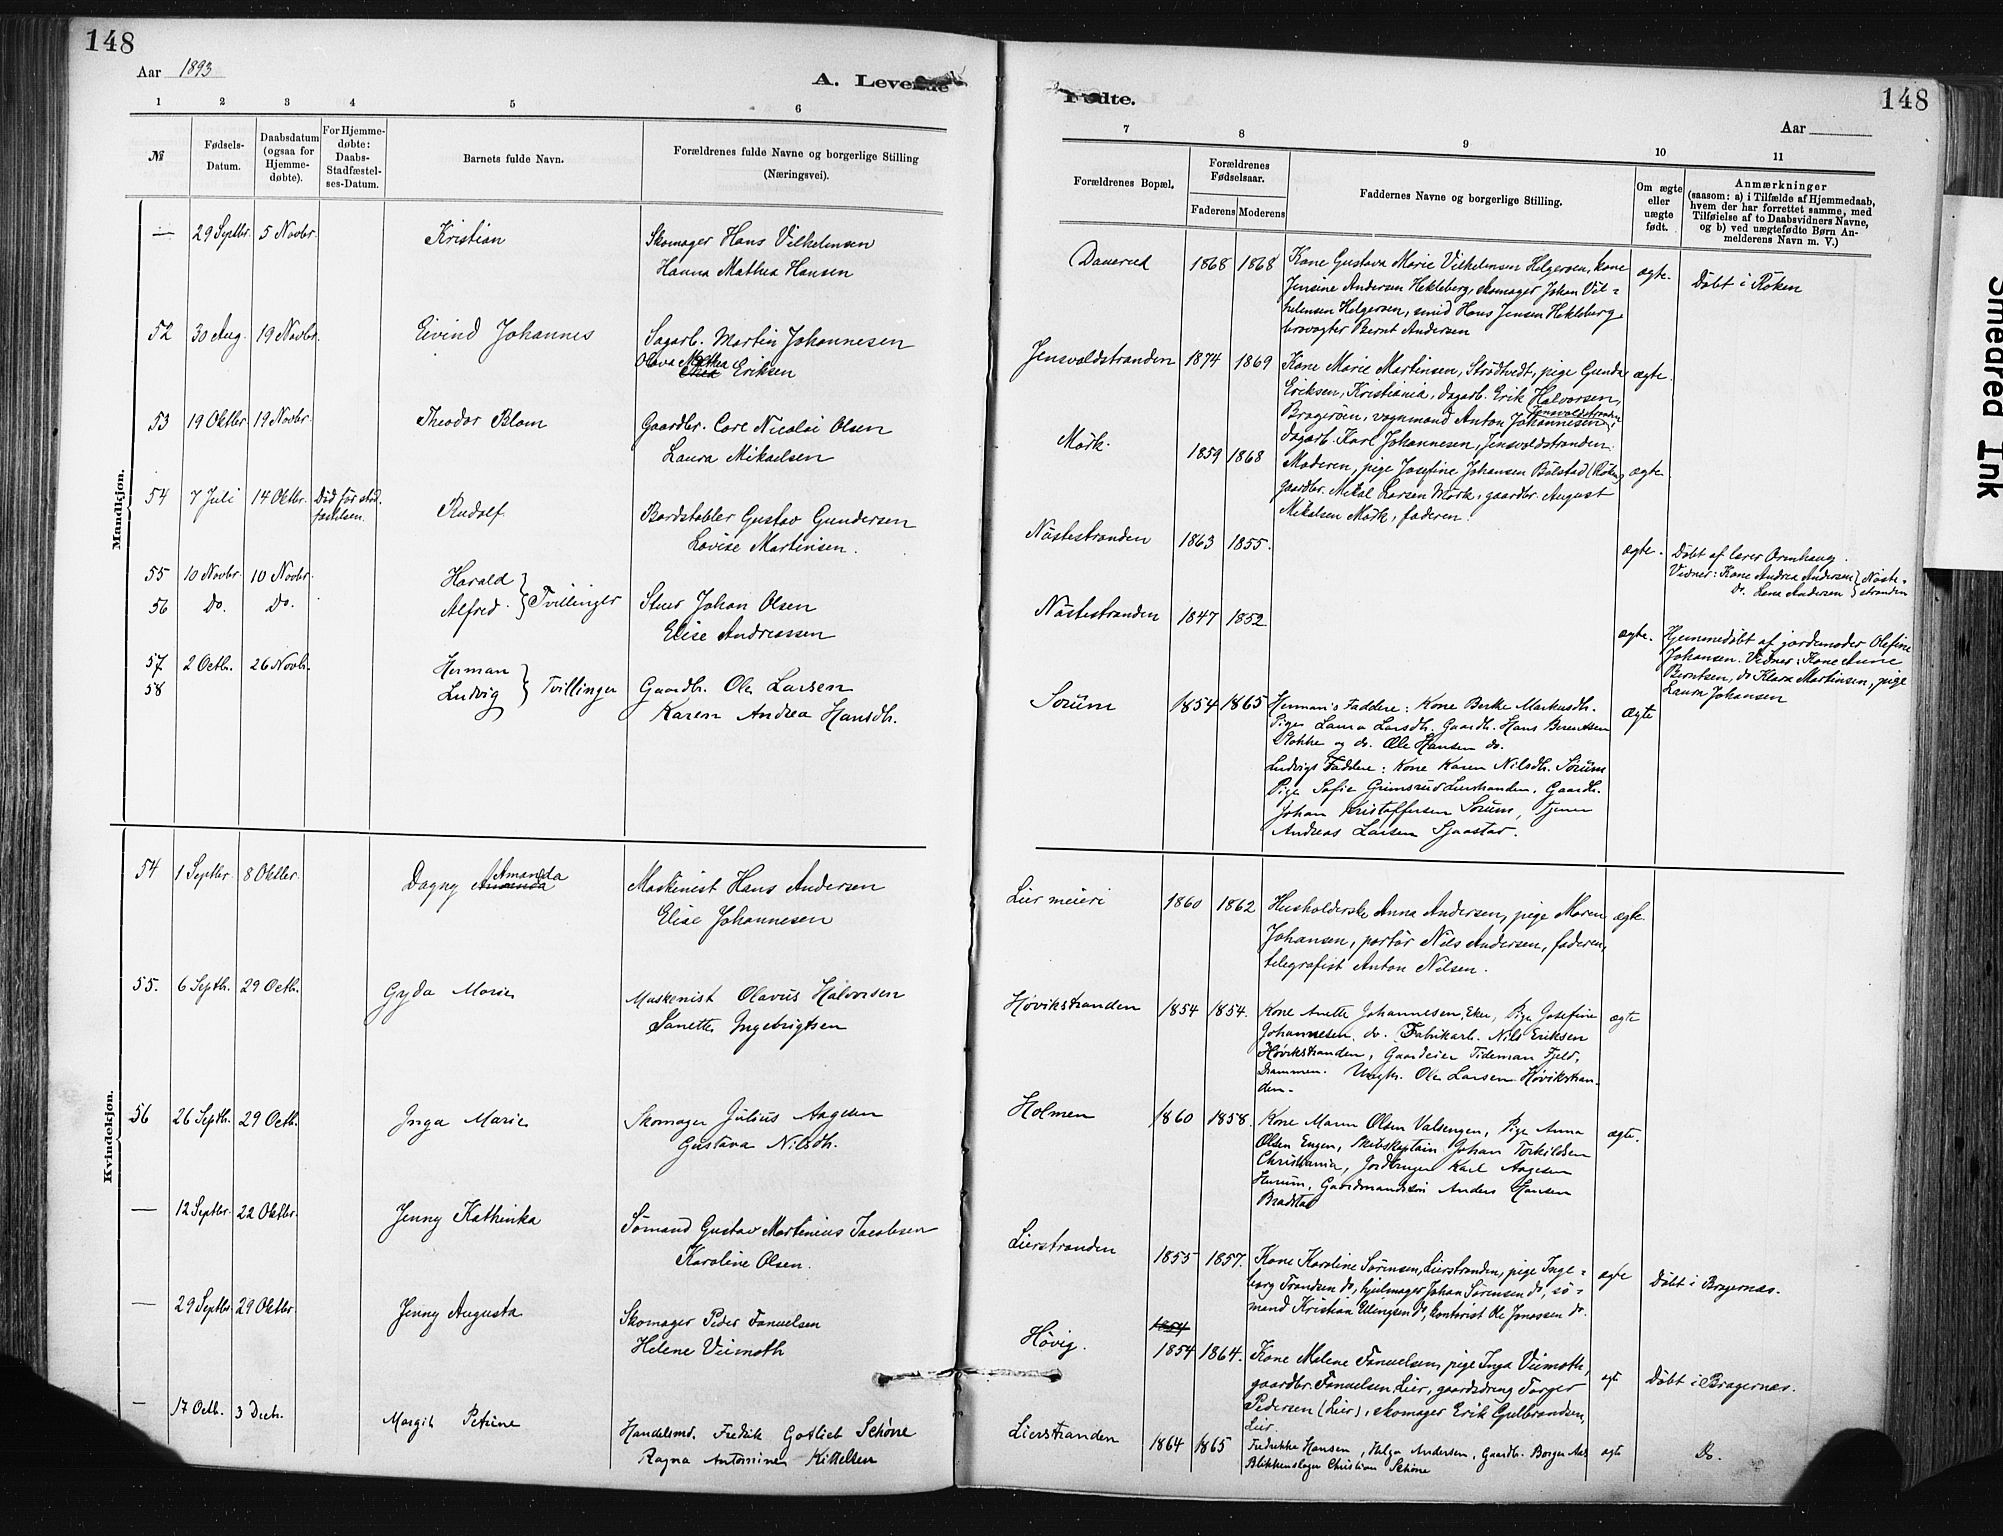 148
Aar 1893
A. Levende
1 2 3 4 5 6
№
Fødsels-
Datum.
Daabsdatum
(ogsaa for
Hjemme-
døbte).
For Hjemme-
døbte:
Daabs-
Stadfæstel-
ses-Datum.
Barnets fulde Navn.
Forældrenes fulde Navne og borgerlige Stilling
(Næringsvei).
Mandkjøn.
— 29 Septbr. 5 Novbr. Kristian Skomager Hans Vilhelmsen
Hanna Mathea Hansen
52 30 Aug. 19 Novbr. Eivind Johannes Sagarb. Martin Johannesen
Olava Mathea Eriksen
53 19 Oktbr. 19 Novbr. Theodor Blom Gaardbr. Carl Nicolai Olsen
Laura Mikaelsen
54 7 Juli 14 Oktbr. Død før stad-
fæstelsen. Rudolf Bordstabler Gustav Gundersen
Lovise Martinsen.
55 10 Novbr. 10 Novbr. Harald
56 Do. Do. Alfred } Tvillinger Stuer Johan Olsen
Elise Andreassen
57. 2 Octb. 26 Novb. Herman
58 Ludvig } Tvillinger Gaardb. Ole Larsen
Karen Andrea Hansdh.
Kvindekjøn.
54 1 Septbr. 8 Oktbr. Dagny Amanda Maskinist Hans Andersen
Elise Johannesen
55. 6 Septb. 29 Octb. Gyda Marie Maskenist Olavus Halvorsen
Sanette Ingebrigtsen
56 26 Septb. 29 Octb. Inga Marie Skomager Julius Aagesen
Gustava Nilsdh.
— 12 Septbr. 22 Oktbr. Jenny Kathinka Sømand Gustav Martinius Jacobsen
Karoline Olsen.
— 29 Septbr. 29 Oktbr. Jenny Augusta Skomager Peder Fanuelsen
Helene Viemoth
— 17 Octb. 3 Decb. Margit Petrine Handelsmd. Fredrik Gotlieb Schøne
Ragna Antomine Kittelsen
Fødte.
148
Aar
7 8 9 10 11
Forældrenes Bopæl.
Forældrenes
Fødselsaar.
Faderens Moderens
Faddernes Navne og borgerlige Stilling.
Om ægte
eller
uægte
født.
Anmærkninger
(saasom: a) i Tilfælde af Hjemmedaab,
hvem der har forrettet samme, med
Tilføielse af to Daabsvidners Navne,
og b) ved uægtefødte Børn An-
melderens Navn m. V.)
Dauerud 1868 1868 Kone Gustava Marie Vilhelmsen Helgersen, kone
Jensine Andersen Hekleberg, skomager Johan Vil-
helmsen Helgersen, smid Hans Jensen Hekleberg
brovogter Bernt Andersen
ægte. Døbt i Røken
Jensvoldstranden 1874 1869 Kone Marie Martinsen, Strødtvedt, pige Gunda
Eriksen, Kristiania, dagarb. Erik Halvorsen,
Bragerøen, vognmand Anton Johannesen, Jensvoldstranden
dagarb. Karl Johannesen, Jensvoldstranden.
ægte.
Mørk. 1859 1868 Moderen, pige Josefine Johansen Bølstad (Røken)
gaardbr. Mikal Larsen Mørk, gaardbr. August
Mikalsen Mørk, faderen.
ægte.
Nøstestranden 1863 1855. ægte. Døbt af lærer Ormhaug.
Vidner: Kone Andrea Andersen } Nøste-
Do. Lena Andersen } stranden
Nøstestranden 1847 1852. ægte. Hjemmedøbt af jordemoder Olefine
Johansen. Vidner: Kone Anne
Berntsen, do Klara Martinsen, pige
Laura Johansen
Sørum 1854 1865 Herman's Faddere: Kone Berthe Markusdh.
Pige Laura Larsdh. Gaardb. Hans Berentsen
Stokke og do. Ole Hansen do.
Ludvigs Faddere: Kone Karen Nilsdh. Sørum
Pige Sofie Grimsrud Lierstranden, Gaardb.
Johan Kristoffersen Sørum, Tjener
Andreas Larsen Sjaastad.
ægte
Lier meieri 1860 1862 Husholderske Anna Andersen, pige Maren
Johansen, portør Nils Andersen, faderen,
telegrafist Anton Nilsen.
ægte.
Høvikstranden 1854 1854. Kone Anette Johannesen, Eker, Pige Josefine
Johannesen do. Fabrikarb. Nils Eriksen
Høvikstranden, Gaardeier Tideman Fjeld,
Drammen. Ungk. Ole Larsen Høvikstran-
den.
ægte
Holmen 1860 1858. Kone Maren Olsen Valsengen, Pige Anna
Olsen Engen, Skibskaptain Johan Torkildsen
Christiania, Jordbruger Karl Aagesen
Hurum, Gaardmandssøn Anders Hansen
Bradstad
ægte.
Lierstranden 1855 1857. Kone Karoline Sørensen, Lierstranden, pige Inge-
borg Frandsen do, hjulmager Johan Sørensen do, sø-
mand Kristian Ellingsen do, kontorist Ole Jonassen do.
ægte Døbt i Bragernæs.
Høvig. 1854
1854 1864. Kone Malene Fanuelsen, pige Inga Viemoth,
gaardbr. Fanuelsen, Lier, gaardsdreng Torger
Pedersen (Lier), skomager Erik Gulbrandsen,
Lier.
ægt Døbt i Bragernæs.
Lierstranden 1864 1865 Fredrikke Hansen, Helga Andersen, Gaardb. Borger Aas
Blikkenslager Christian Schøne
ægte Do.
Smedred Ink